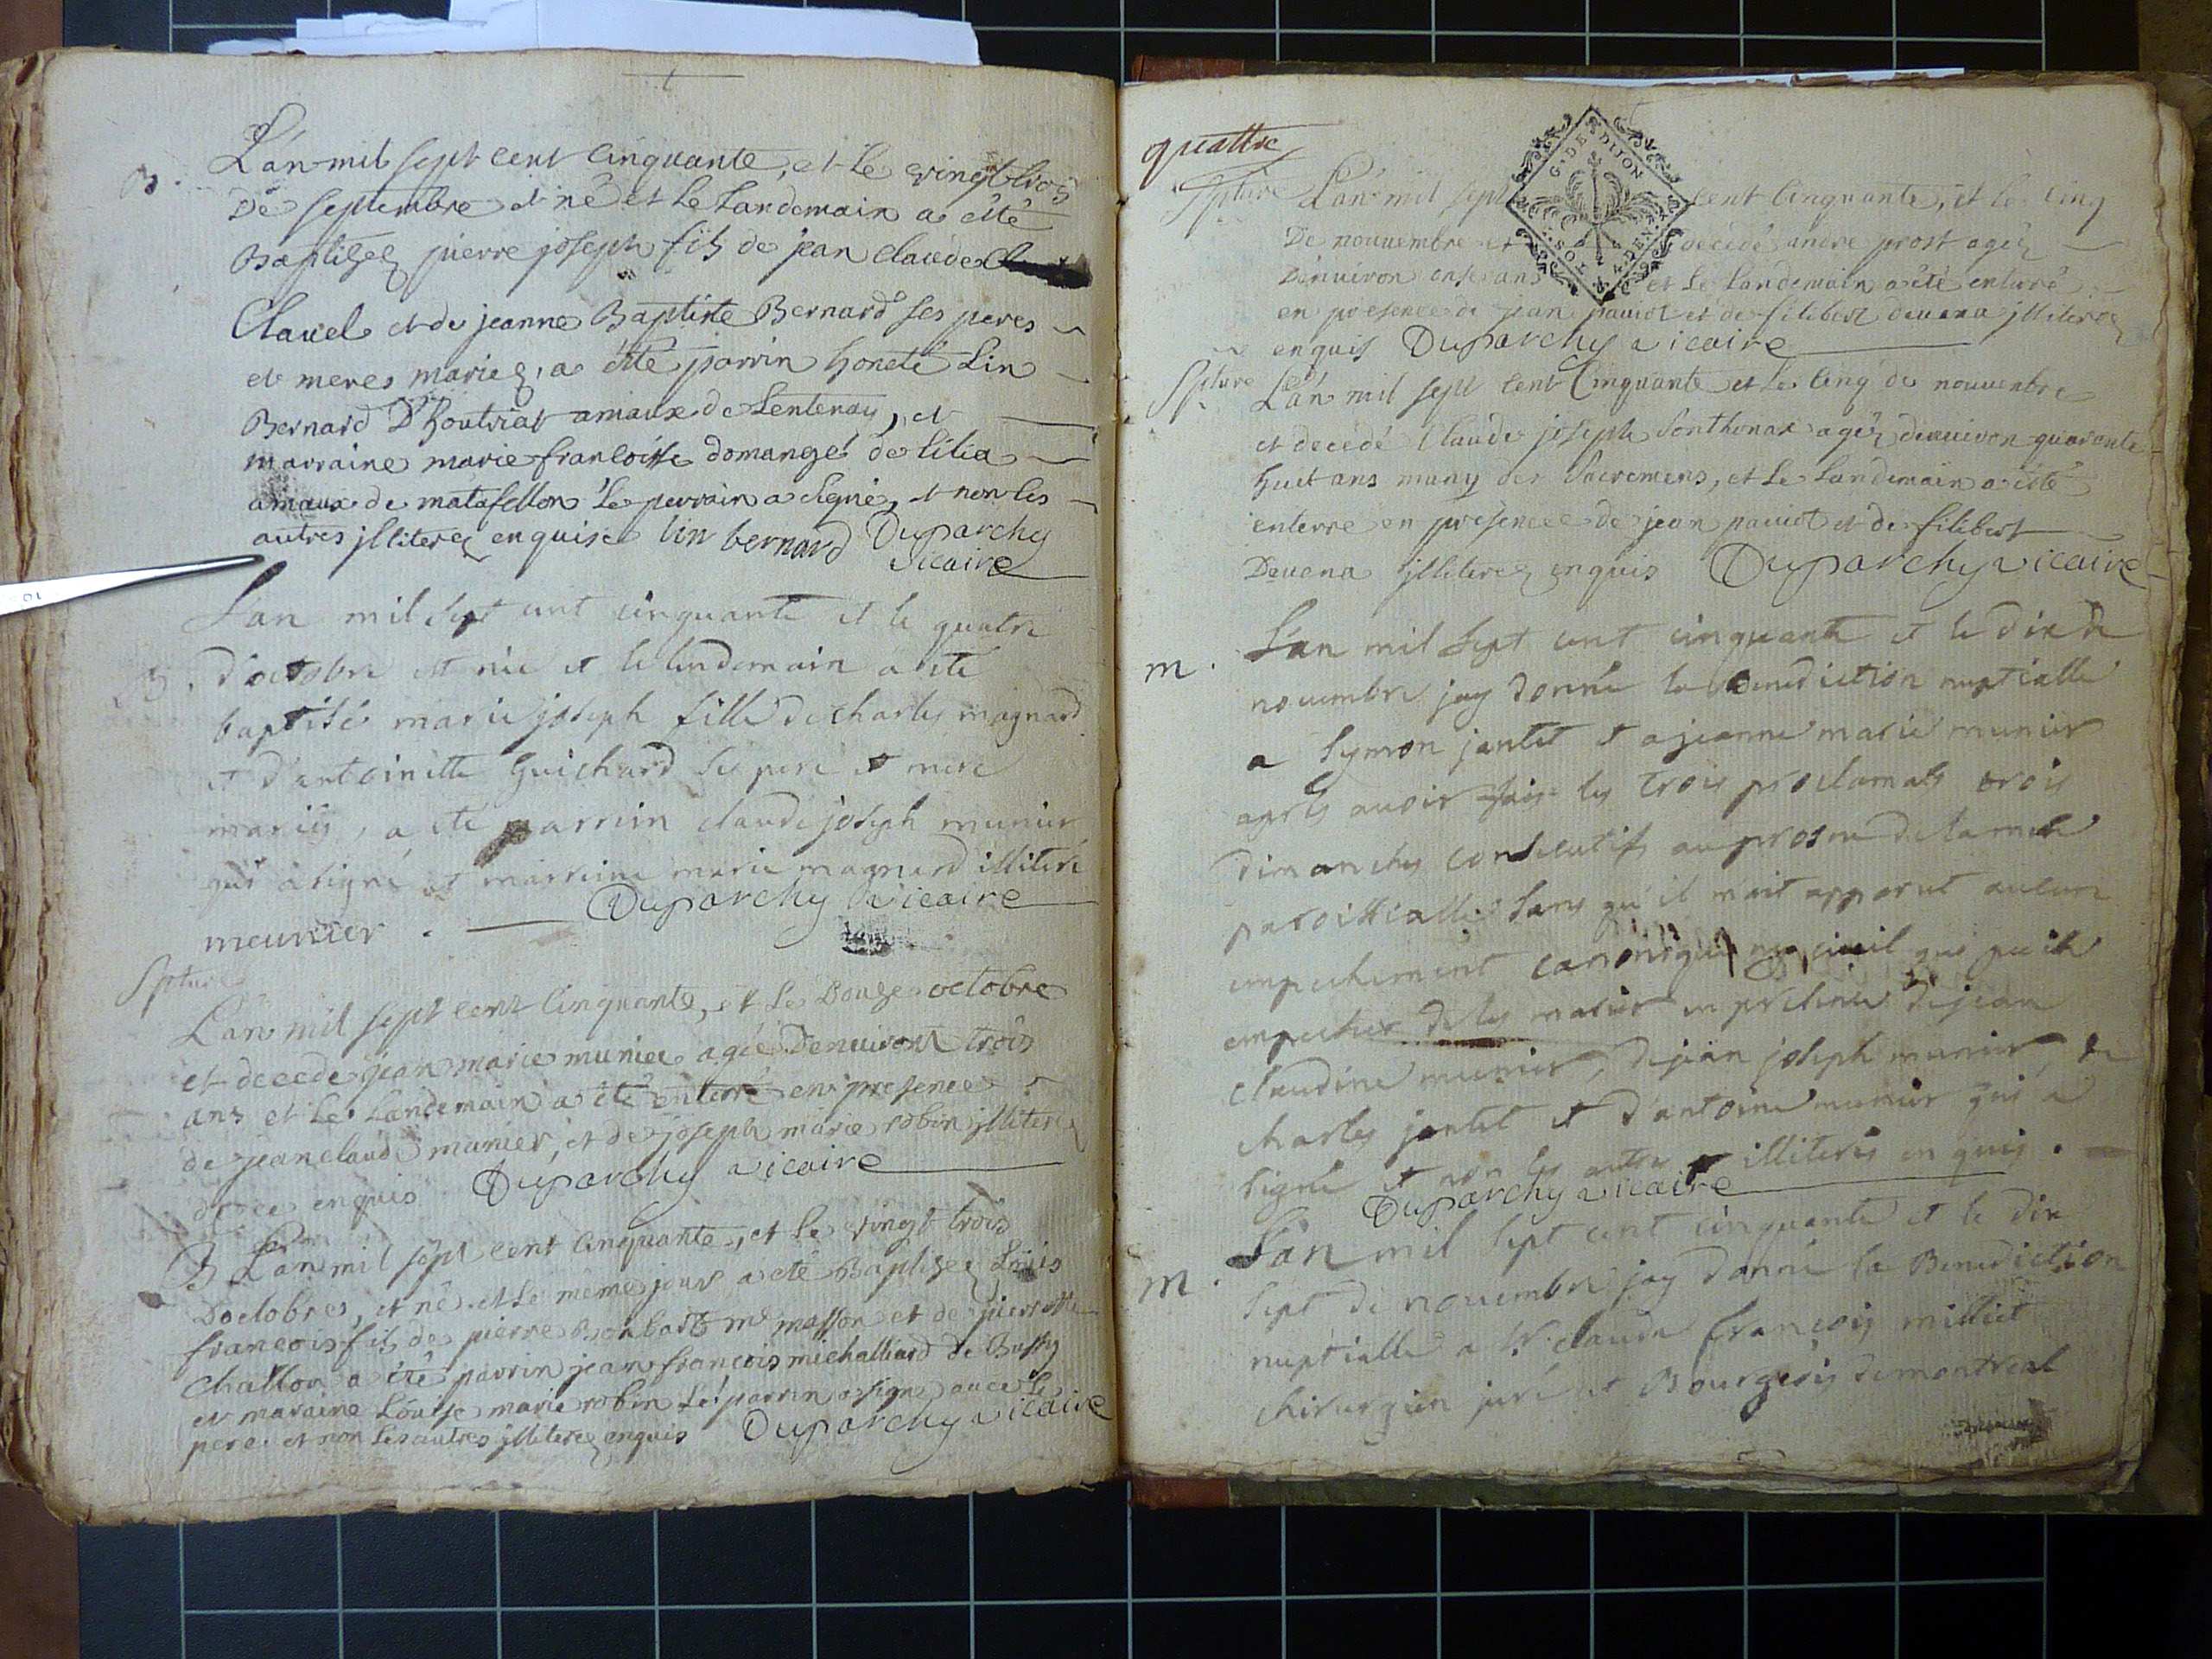 B.
L'an mil sept cent cinquante, et le vingt trois
De septembre et né et le Landemain a eté
Baptizez pierre joseph fils de jean claude
Clavel et de jeanne Baptiste Bernard ses peres
et meres mariez, a été parrin honeté Lin
Bernard D'houtriat amaux de Lentenay, et
marraine marie francoisse domange de
amaux de matafellon Le parrain a signé, et non les
autres jlliterez enquise lin bernard Duparchy
vicaire
L'an mil sept cent cinquante et le quatre
B. d'octobre est nie et le lendemain a ete
baptisé marie joseph fille de charles magnard
et d'antoinette Guichard ses pere et mere
mariés, a ete parrein claude joseph munier
qui a signé et marreine marie magnard illiteré
Duparchy vicaire
meunier .
Spture
L'an mil sept cent cinquante, et le Douze octobre
et decede jean marie munier agée Denuiront trois
ans et Le Landemain a été enterré en presence
de jean claude munier, et de joseph marie robin jlliterez
enquis Duparchy vicaire
B L'an mil sept cent cinquante, et le vingt trois
Doctobres, et né et le même jour a eté Baptizez Louis
francois fils de pierre Bonbart me masson et de pierrette
Challon a été parrin jean francois michalliard de Bussy
et maraine Louise marie robin Le parrin a signe avec le
pere et non les autres jlliterez enquis Duparchy vicaire
quattre
G. DE DIJON
Spture L'an mil sept cent cinquante, et le cinq
De nouvembre et decédé andre prost agéz
Denuiron onse ans et Le Landemain a été enterré
en presence de jean paviot et de filibert devena jlliterez
enquis Duparchy vicaire
Spture L'an mil sept cent Cinquante et le cinq de nouvembre
et decedé Claude joseph Sonthonax agéz denuiron quarante
huit ans muny des Sacremens, et Le Landemain a été
enterre en presencee de jean paviot et de filibert
Devena jlliterez enquis Duparchy vicaire
L'an mil sept cent cinquante et le dix de
m. novembre jay donné la benediction nuptialle
a Symon jantet et a jeanne marie munier
apres avoir fais les trois proclamats trois
dimanches consecutifs au prosne de la messe
paroissialle sans qu'il mait apparut aucun
empechement canonique ny civil qui puisse
empecher de les marier en presence de jean
claudine munier, de jean joseph munier de
charles jantet et d'antoine munier qui a
signé et non les autre illiterés enquis .
Duparchy vicaire
L'an mil sept cent cinquante et le dix
m. sept de novembre jay donné la Benediction
nuptialle a Sr. claude francois milliet
chirurgien juré et Bourgeois de montreal